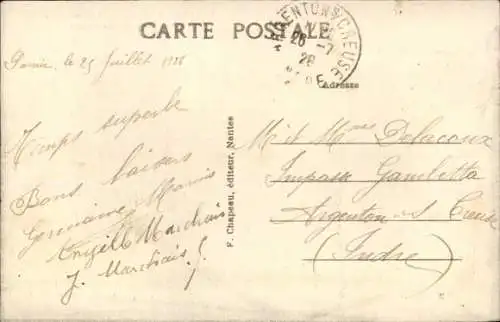 CARTE POSTALE
ARGENTON S CREUSE
26 -7
28
Adresse
le 25 Juillet 1928
Temps superbe
Bons baisers
Germaine
Marchais
J. Marchais
F. Chapeau, éditeur, Nantes
M. et Mme Delacoux
Impasse Gambetta
Argenton s/ Creuse
(Indre)